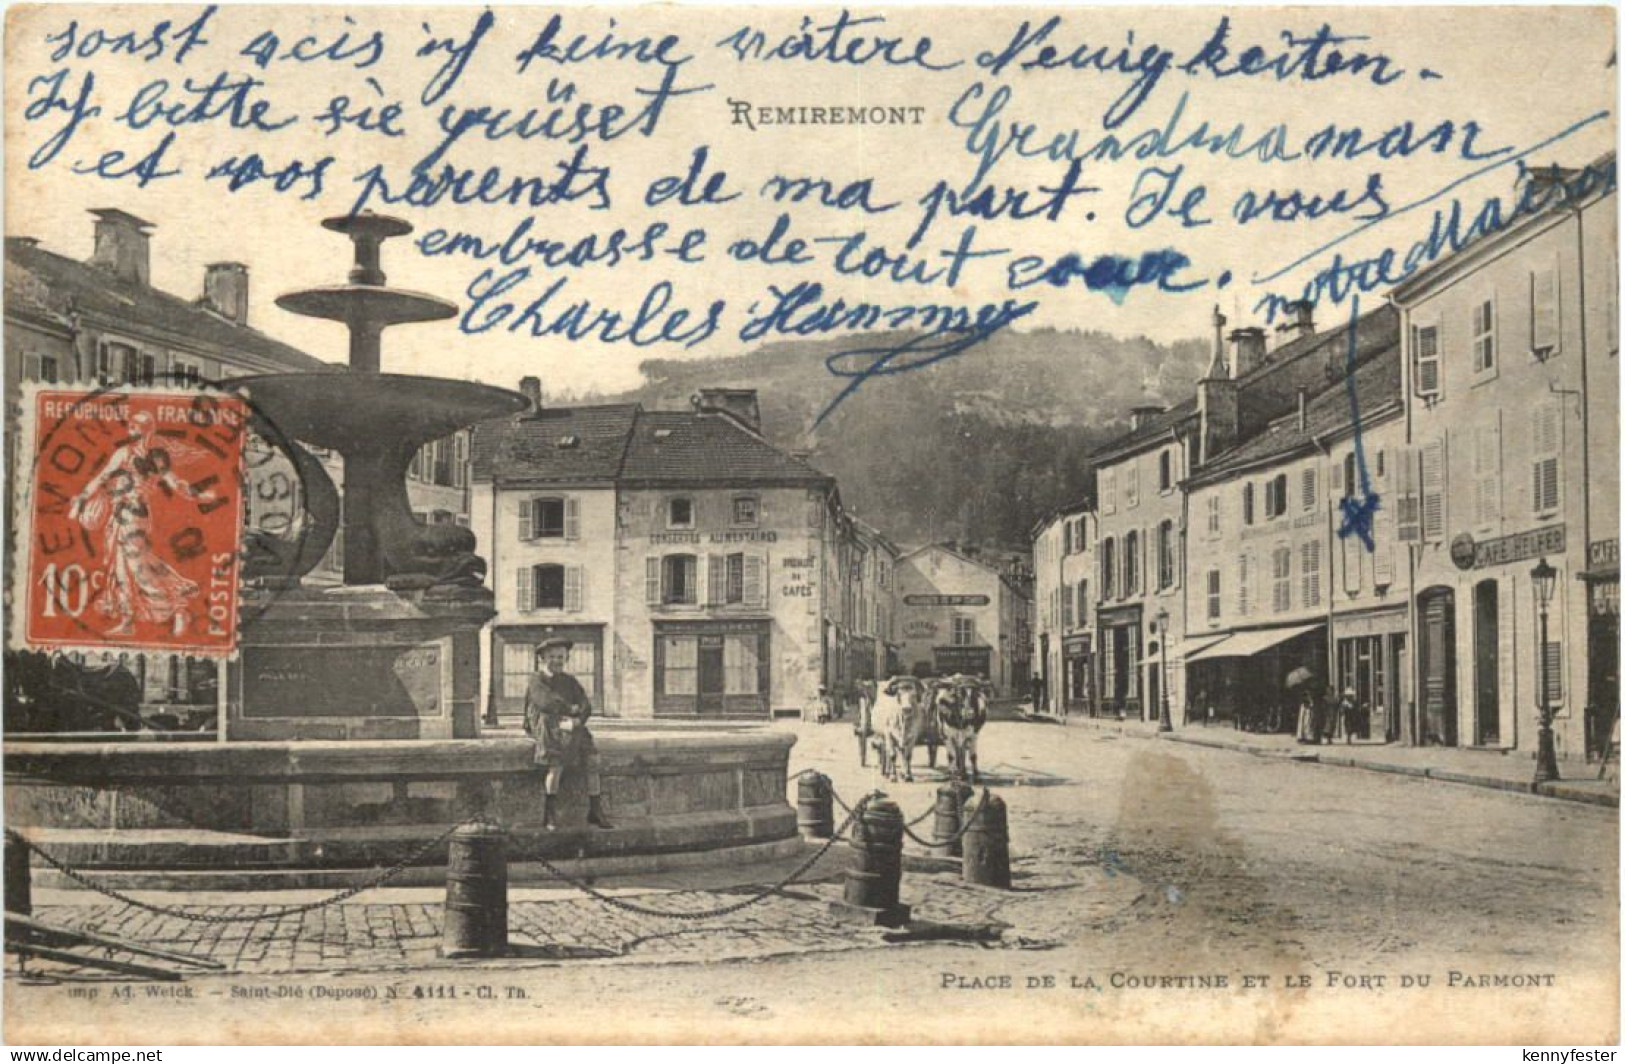 sonst weis ich keine wätere Neuigkeiten.
Ich bitte sie grüset Grandmaman
REMIREMONT
et vos parents de ma part. Je vous
embrasse de tout coeur.
Charles Hammer
notre Maison
REPUBLIQUE FRANÇAISE
10c
POSTES
REMIREMONT
VOSGES
CONSERVES ALIMENTAIRES
SPECIALITÉ
DE
CAFÉS
CAFÉ HELFER
PLACE DE LA COURTINE ET LE FORT DU PARMONT
Imp. Ad. Weick. — Saint-Dié (Déposé) No 4111 - Cl. Th.
kennyfester